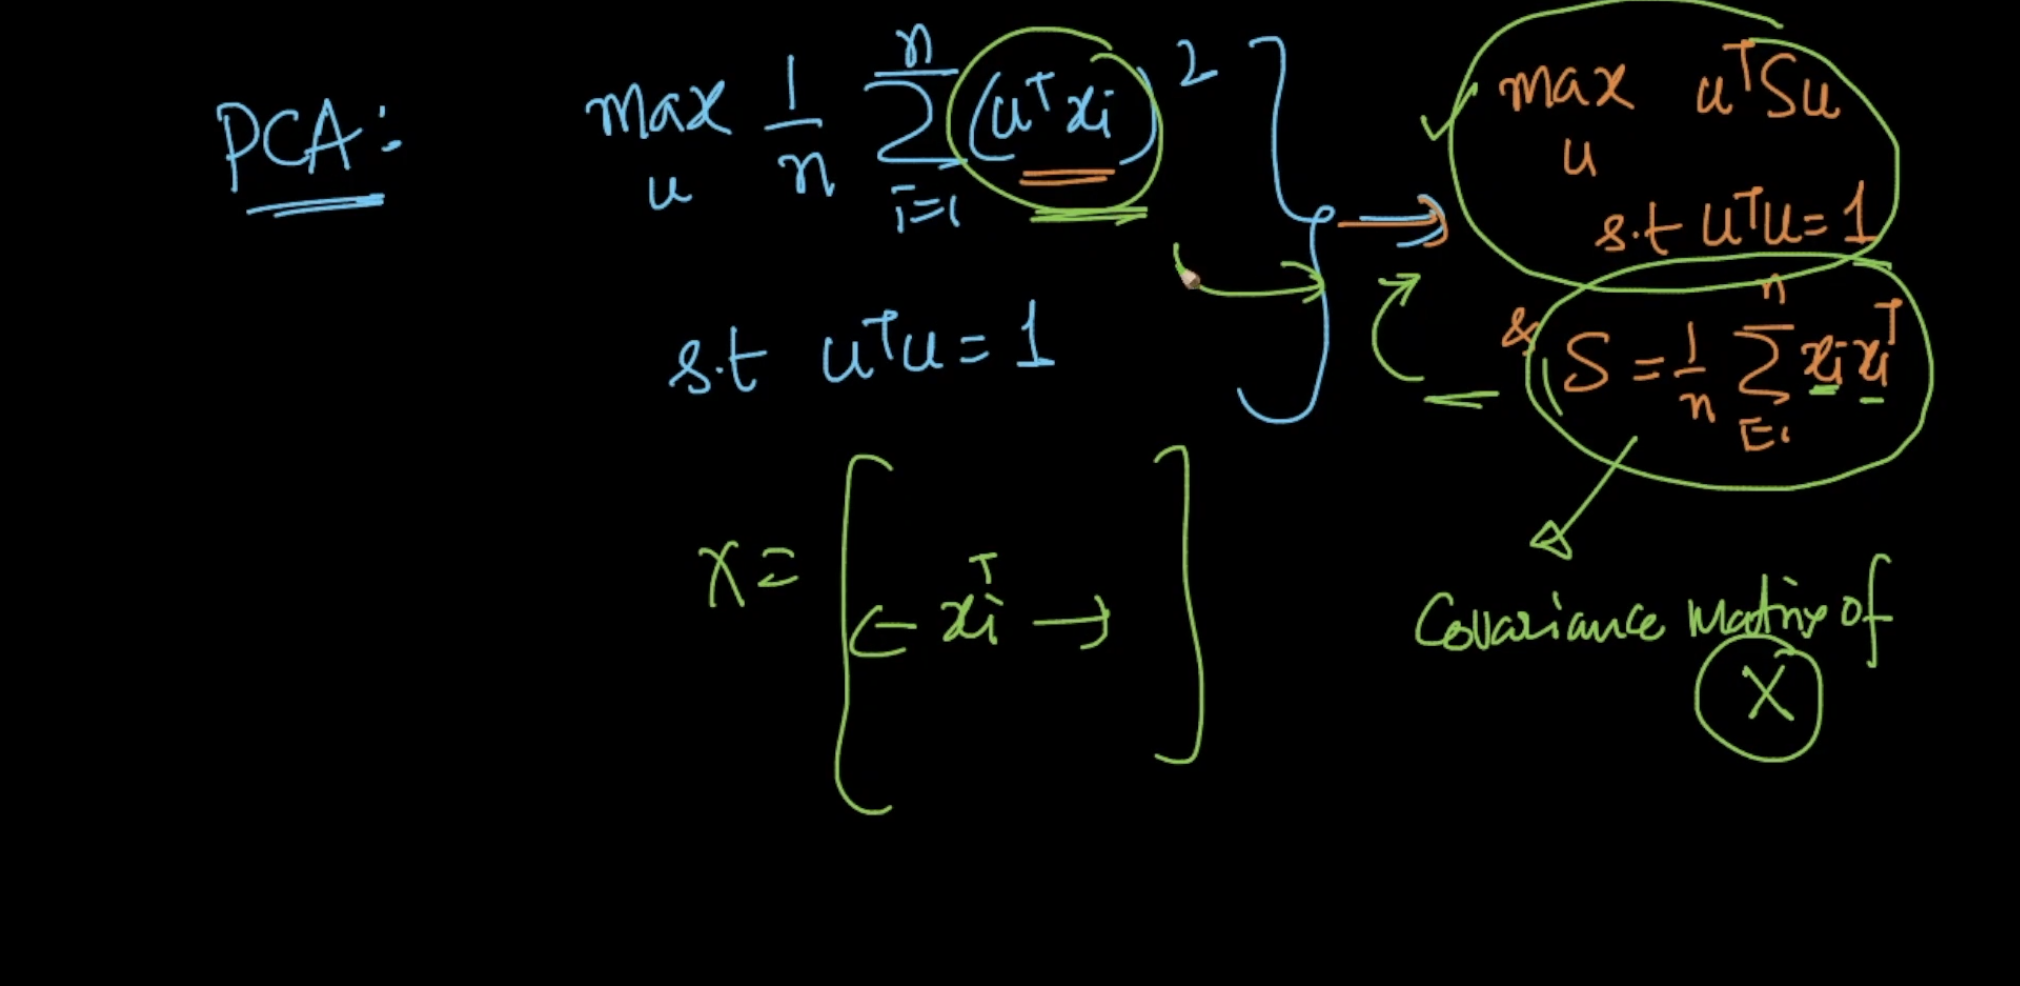 PCA:
max u 1/n Σ i=1 n (uᵀxi)²
s.t uᵀu = 1
max u uᵀSu
s.t uᵀu = 1
& S = 1/n Σ i=1 n xi xiᵀ
X = [ ← xiᵀ → ]
Covariance Matrix of
X